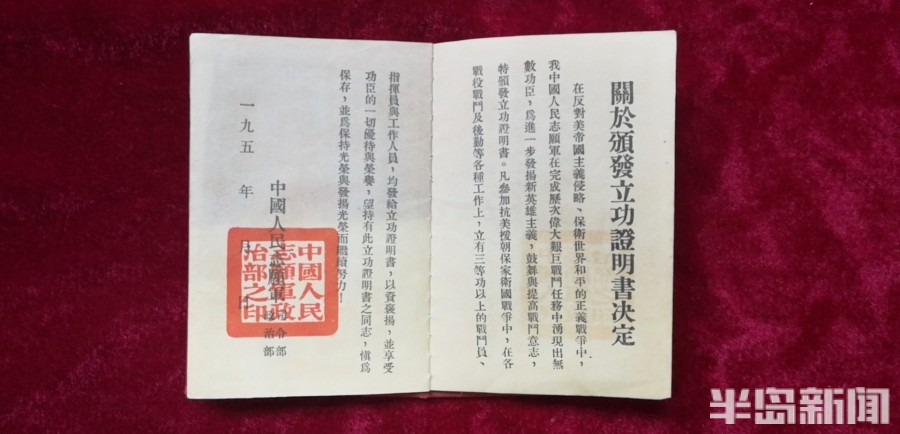 關於頒發立功證明書决定
在反對美帝國主義侵略、保衛世界和平的正義戰爭中，
我中國人民志願軍在完成歷次偉大艱巨戰鬥任務中湧現出無
數功臣，爲進一步發揚新英雄主義，鼓舞與提高戰鬥意志，
特頒發立功證明書。凡參加抗美援朝保家衛國戰爭中，在各
戰役戰鬥及後勤等各種工作上，立有三等功以上的戰鬥員、
指揮員與工作人員，均發給立功證明書，以資褒揚，並享受
功臣的一切優待與榮譽，望持有此立功證明書之同志，愼爲
保存，並爲保持光榮與發揚光榮而繼續努力！
中國人民志願軍
司令部
政治部
一九五 年 月 日
中國人民
志願軍政
治部之印
半岛新闻